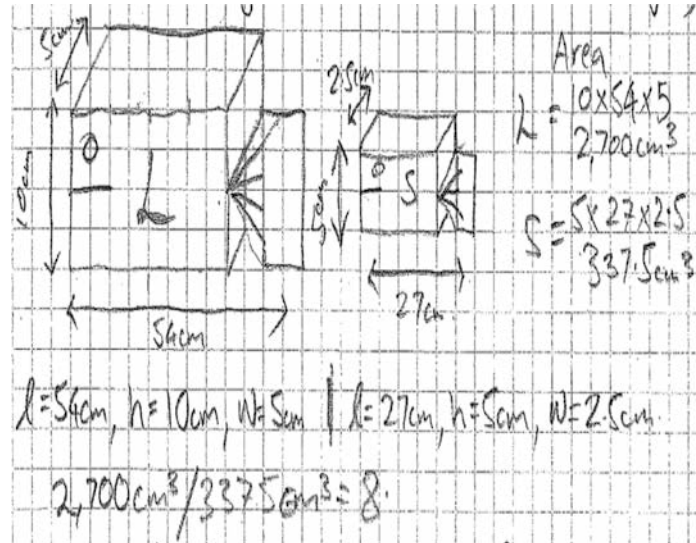 5cm
10cm
0
L
54cm
2.5cm
5cm
0
S
27cm
Area
L = 10x54x5
2,700cm³
S = 5x27x2.5
337.5cm³
l=54cm, h=10cm, W=5cm | l=27cm, h=5cm, W=2.5cm.
2,700cm³/3375cm³=8.